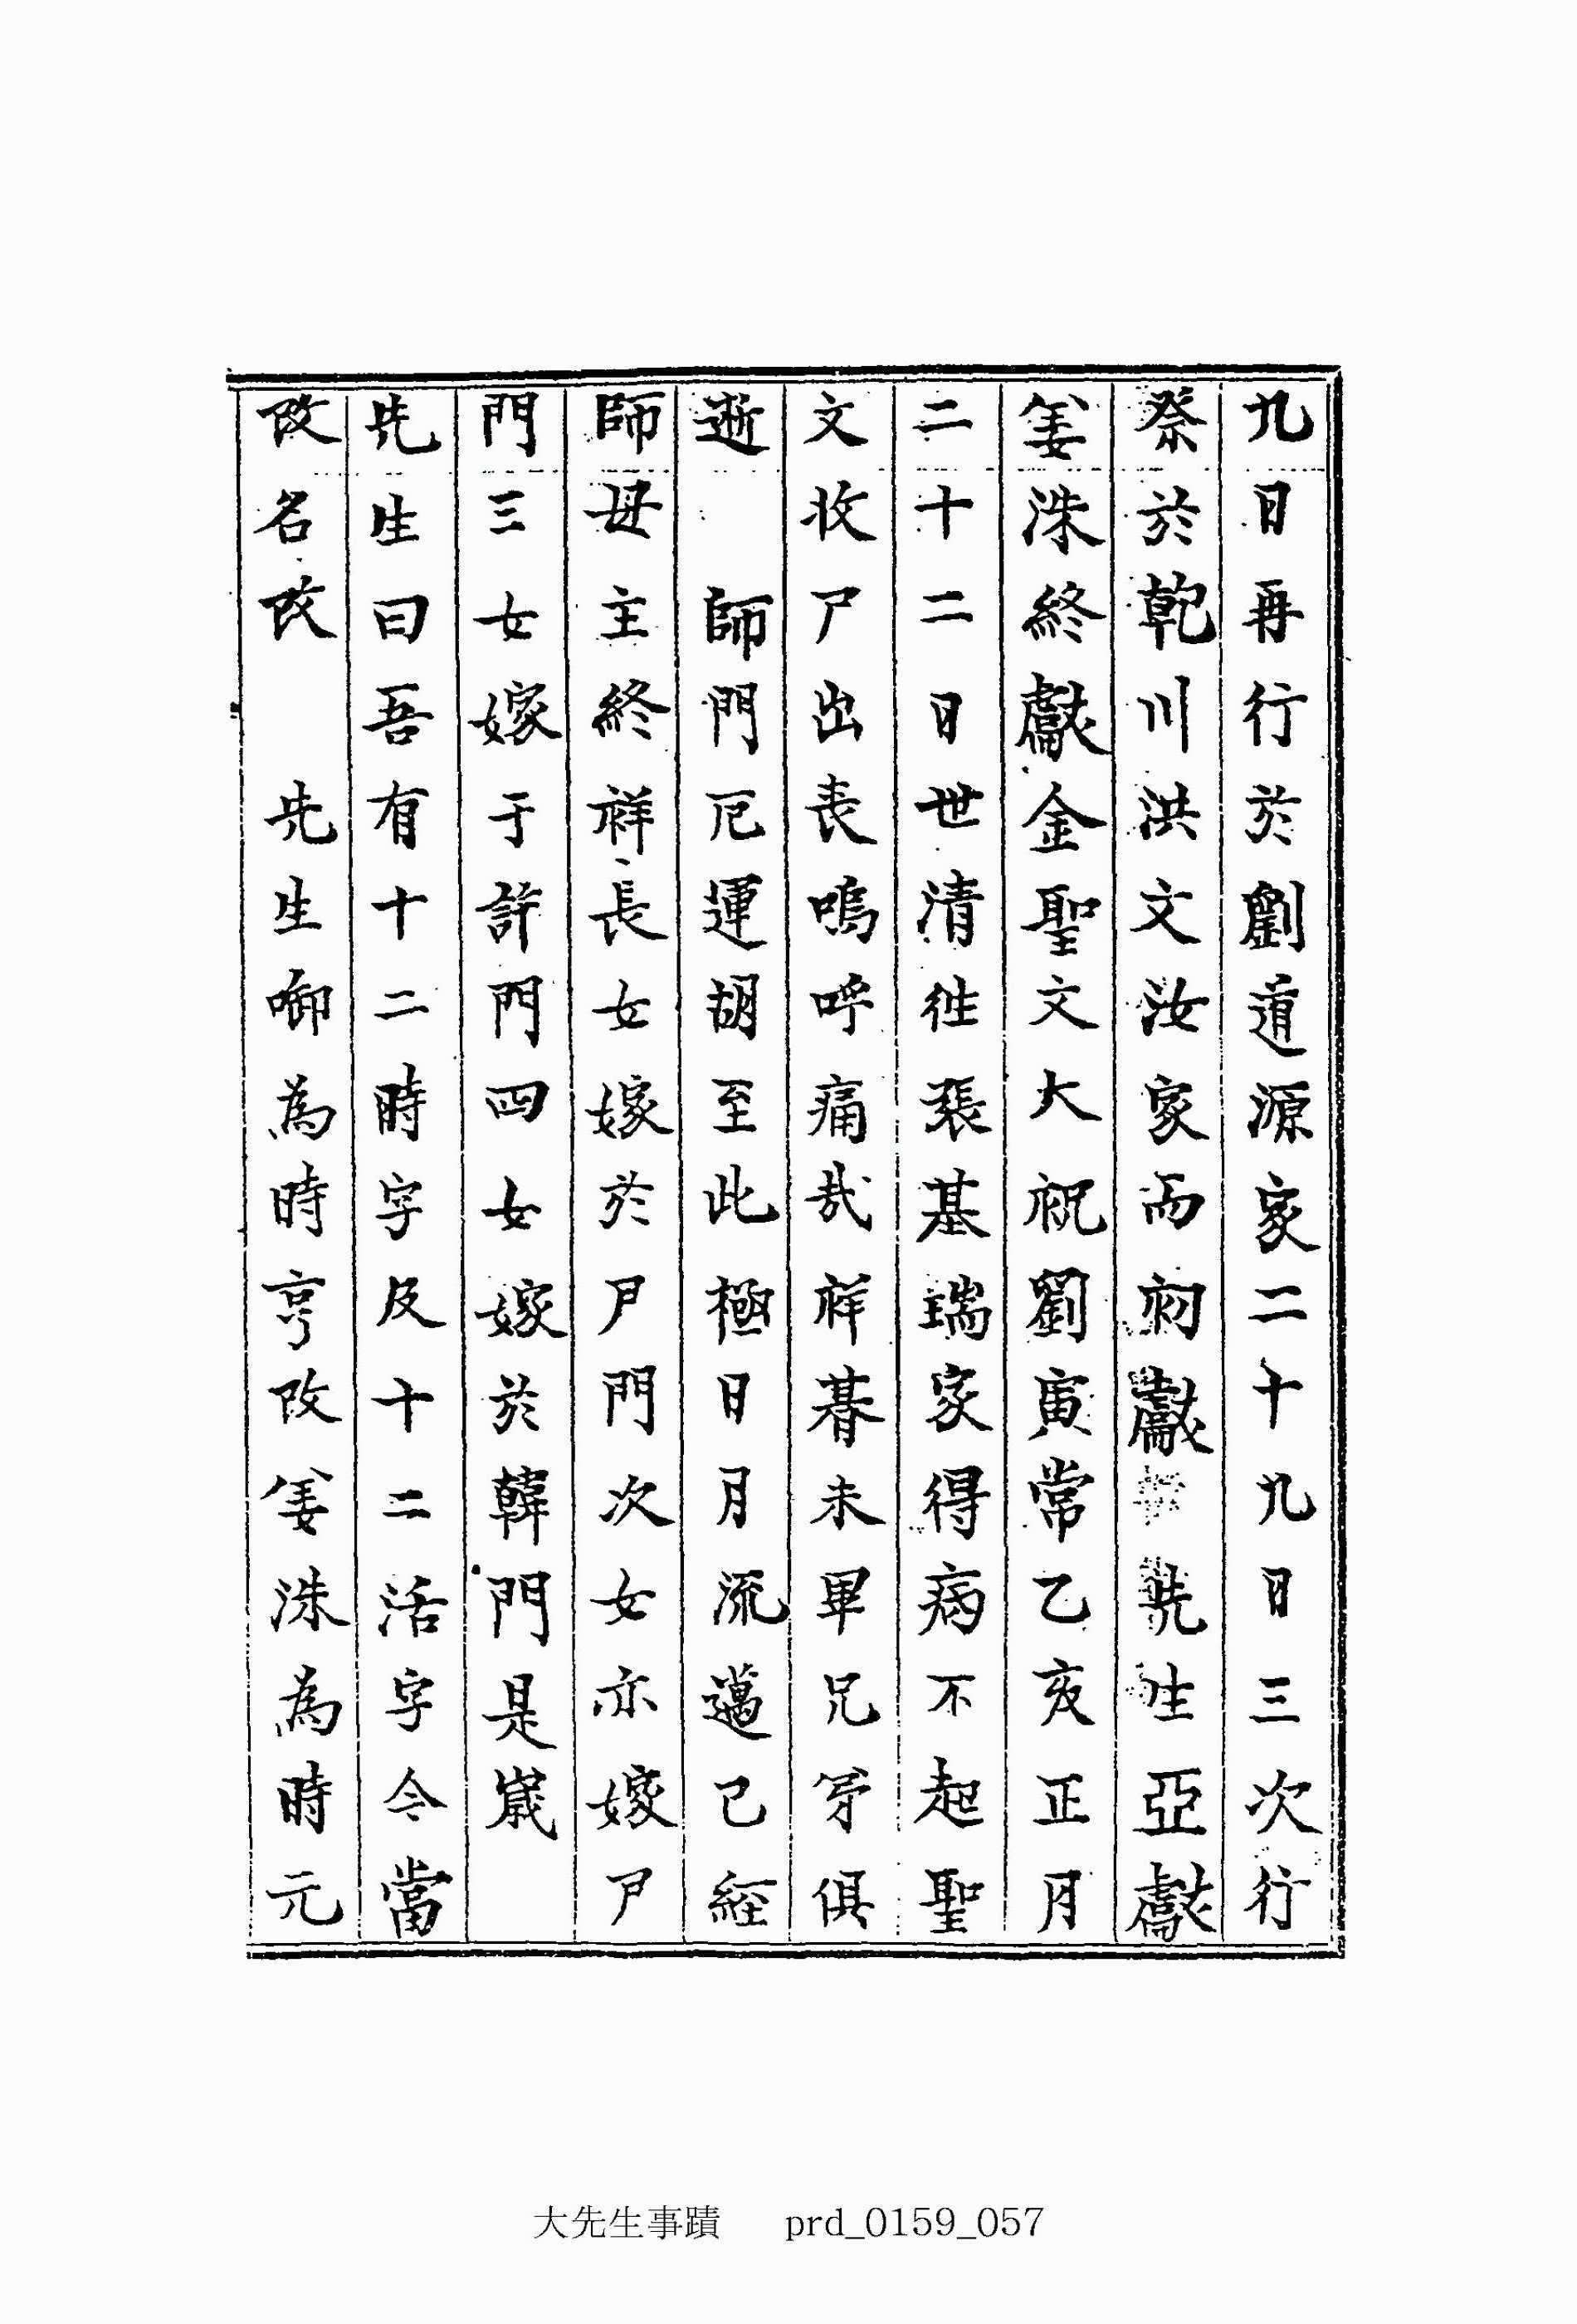 九日再行於劉道源家二十九日三次行
祭於乾川洪文汝家而初獻先生亞獻
姜洙終獻金聖文大祝劉寅常乙亥正月
二十二日世淸徃裴基瑞家得病不起聖
文收尸出丧嗚呼痛哉祥朞未畢兄弟俱
逝 師門厄運胡至此極日月流邁已經
師母主終祥長女嫁於尹門次女亦嫁尹
門三女嫁于許門四女嫁於韓門是歲
先生曰吾有十二時字及十二活字今當
改名改 先生啣為時亨改姜洙為時元
大先生事蹟 prd_0159_057